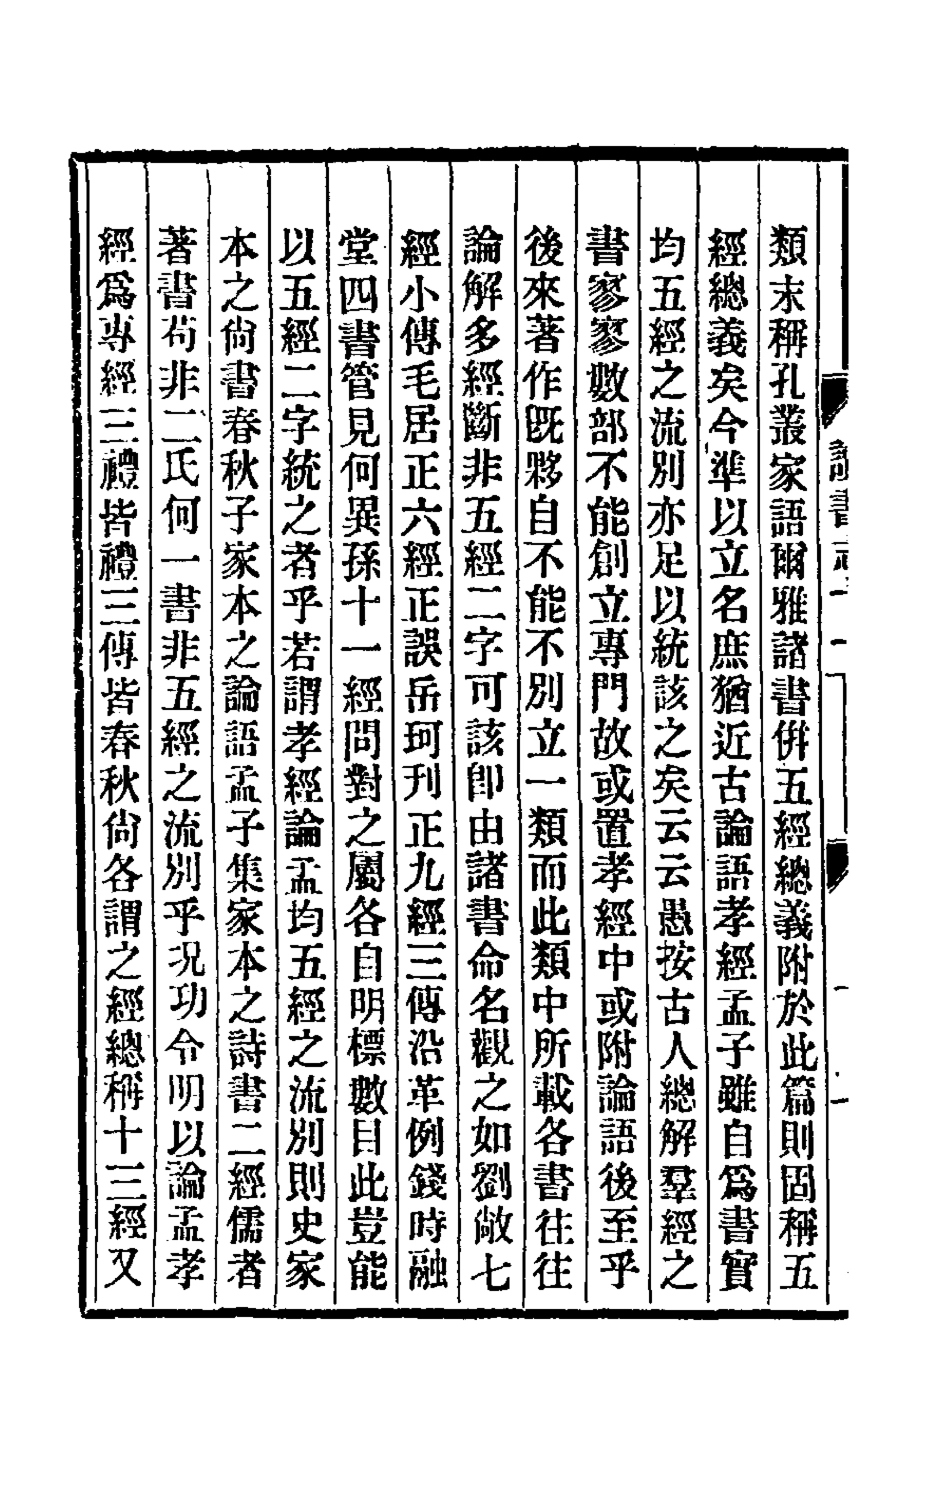 類末稱孔叢家語爾雅諸書倂五經總義附於此篇則固稱五
經總義矣今準以立名庶猶近古論語孝經孟子雖自爲書實
均五經之流別亦足以統該之矣云云愚按古人總解羣經之
書寥寥數部不能創立專門故或置孝經中或附論語後至乎
後來著作旣夥自不能不別立一類而此類中所載各書往往
論解多經斷非五經二字可該卽由諸書命名觀之如劉敞七
經小傳毛居正六經正誤岳珂刊正九經三傳沿革例錢時融
堂四書管見何異孫十一經問對之屬各自明標數目此豈能
以五經二字統之者乎若謂孝經論孟均五經之流別則史家
本之尙書春秋子家本之論語孟子集家本之詩書二經儒者
著書苟非二氏何一書非五經之流別乎况功令明以論孟孝
經爲專經三禮皆禮三傳皆春秋尙各謂之經總稱十三經又